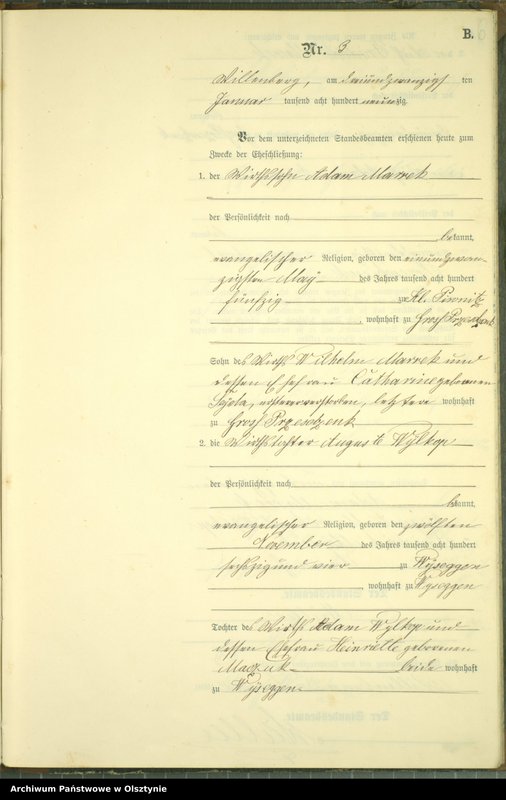 B.
Nr. 3
Willenberg, am dreiundzwanzigsten
Januar tausend acht hundert neunzig.
Vor dem unterzeichneten Standesbeamten erschienen heute zum
Zwecke der Eheschließung:
1. der Wirthssohn Adam Marrek
der Persönlichkeit nach
bekannt,
evangelischer Religion, geboren den einundzwan-
zigsten May des Jahres tausend acht hundert
fünfzig zu Kl. Piwnitz
, wohnhaft zu Groß
Sohn des Wirths Wilhelm Marrek und
dessen Ehefrau Catharine geborenen
ersterer verstorben, letztere wohnhaft
zu Groß
2. die Wirthstochter Auguste Wylkop
der Persönlichkeit nach
bekannt,
evangelischer Religion, geboren den zwölften
November des Jahres tausend acht hundert
sechszig und vier zu Wyseggen
, wohnhaft zu Wyseggen
Tochter des Wirths Adam Wylkop und
dessen Ehefrau Heinriette geborenen
beide wohnhaft
zu Wyseggen.
Archiwum Państwowe w Olsztynie